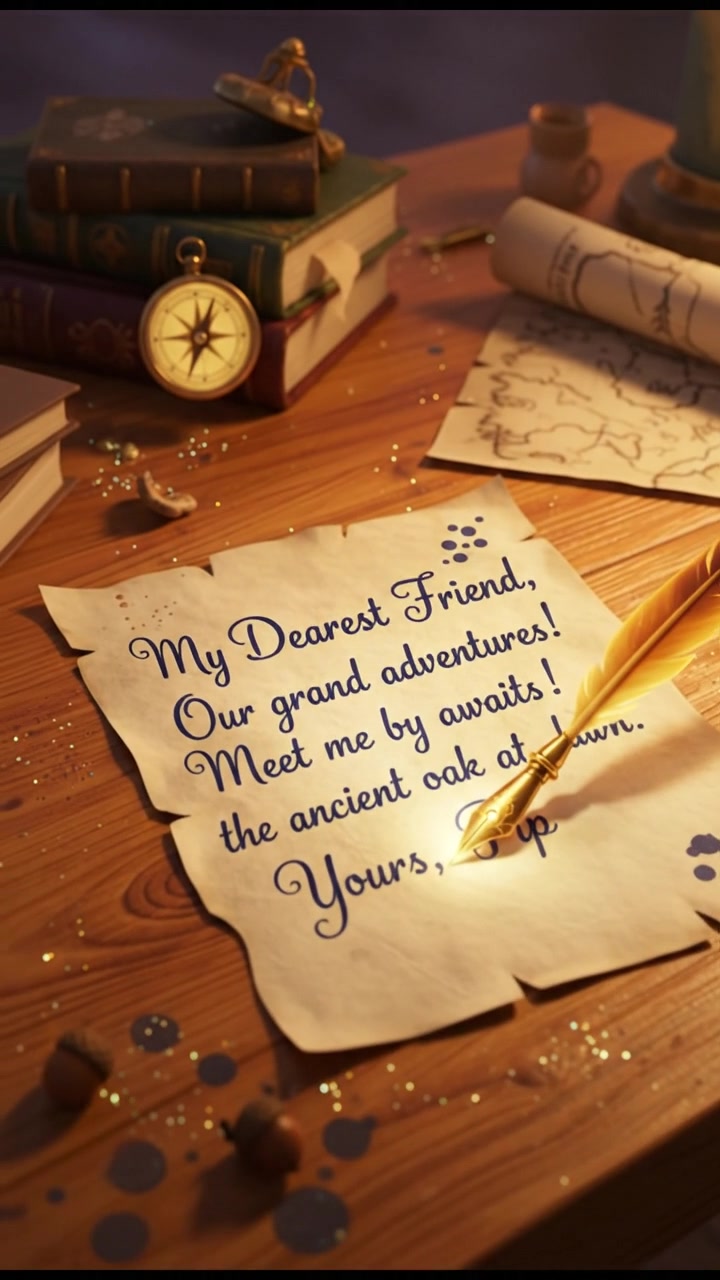 My Dearest Friend,
Our grand adventures!
Meet me by awaits!
the ancient oak at dawn.
Yours, Pip